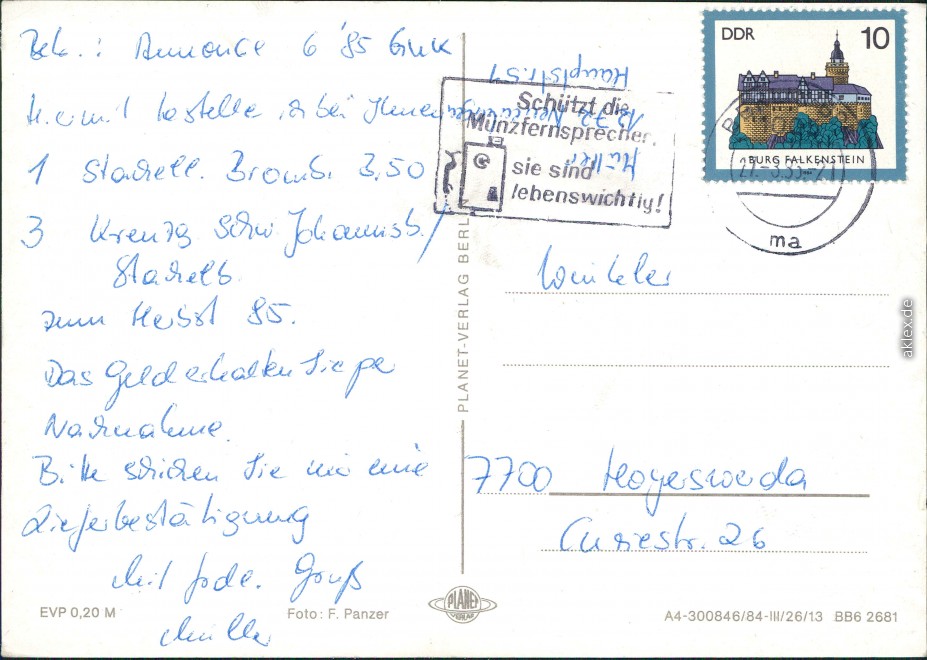 Betr.: Annonce 6 '85
Hiermit bestelle ich bei Ihnen
1 Stachelb. Bromb. 3,50
3 Kreuzg Schw Johannisb./
Stachelb.
zum Herbst 85.
Das Geld erhalten Sie per
Nachnahme.
Bitte schicken Sie mir eine
Lieferbestätigung
Mit frdl. Gruß
Müller
EVP 0,20 M
Foto: F. Panzer
PLANET-VERLAG BERLIN
PLANET
VERLAG
Müller
Hauptstr. 51
Schützt die
Münzfernsprecher,
sie sind
lebenswichtig!
DDR 10
BURG FALKENSTEIN
ma
Winkler
7700 Hoyerswerda
Curiestr. 26
A4-300846/84-III/26/13 BB6 2681
aklex.de